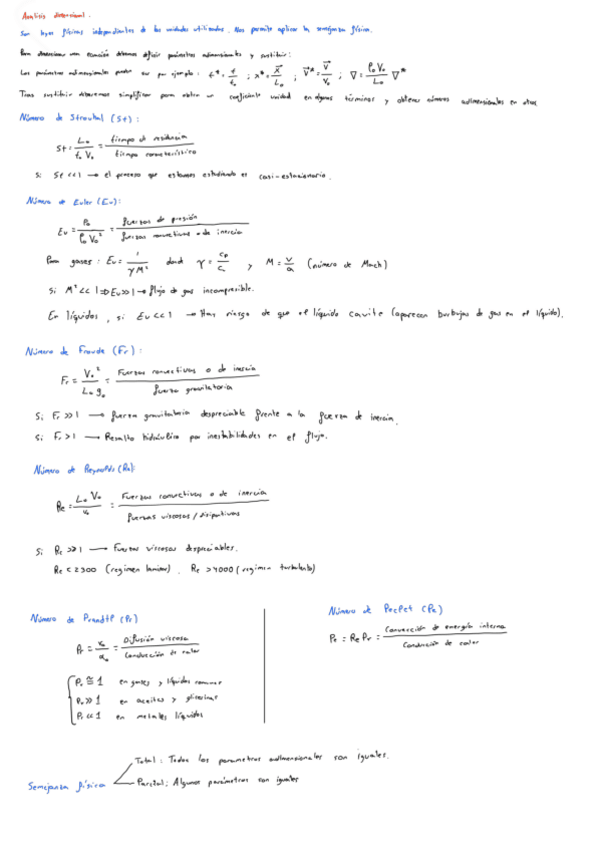 Análisis dimensional.
Son leyes físicas independientes de las unidades utilizadas. Nos permite aplicar la semejanza física.
Para dimensionar una ecuación debemos definir parámetros adimensionales y sustituir:
Los parámetros adimensionales puede ser por ejemplo: t* = t/t₀ ; x* = x/L₀ ; V* = V/V₀ ; ∇ = ∇*
Tras sustituir deberemos simplificar para obten un coeficiente unidad en algunos términos y obtener números adimensionales en otros
Número de Strouhal (St):
St = L₀/(t₀ V₀) = tiempo de residencia / tiempo característico
Si St << 1 → el proceso que estamos estudiando es casi-estacionario.
Número de Euler (Eu):
Eu = P₀/(ρ₀ V₀²) = fuerzas de presión / fuerzas convectivas o de inercia
Para gases: Eu = 1/(γ M²) dond γ = cp/cv y M = V/a (número de Mach)
Si M² << 1 ⇒ Eu >> 1 → flujo de gas incompresible.
En líquidos, si Eu << 1 → Hay riesgo de que el líquido cavite (aparecen burbujas de gas en el líquido).
Número de Froude (Fr):
Fr = V₀²/(L₀ g₀) = Fuerzas convectivas o de inercia / fuerza gravitatoria
Si Fr >> 1 → fuerza gravitatoria despreciable frente a la fuerza de inercia.
Si Fr > 1 → Resalto hidráulico por inestabilidades en el flujo.
Número de Reynolds (Re):
Re = L₀ V₀/ν₀ = Fuerzas convectivas o de inercia / fuerzas viscosas / disipativas
Si Re >> 1 → Fuerzas viscosas despreciables.
Re < 2300 (regimen laminar). Re > 4000 (regimen turbulento)
Número de Prandtl (Pr)
Pr = ν₀/α₀ = Difusión viscosa / Conducción de calor
Pr ≅ 1 en gases y líquidos comunes
Pr >> 1 en aceites y glicerinas
Pr << 1 en metales líquidos
Número de Peclet (Pe)
Pe = Re Pr = Convección de energía interna / Conducción de calor
Semejanza física
Total: Todos los parametros adimensionales son iguales.
Parcial: Algunos parámetros son iguales